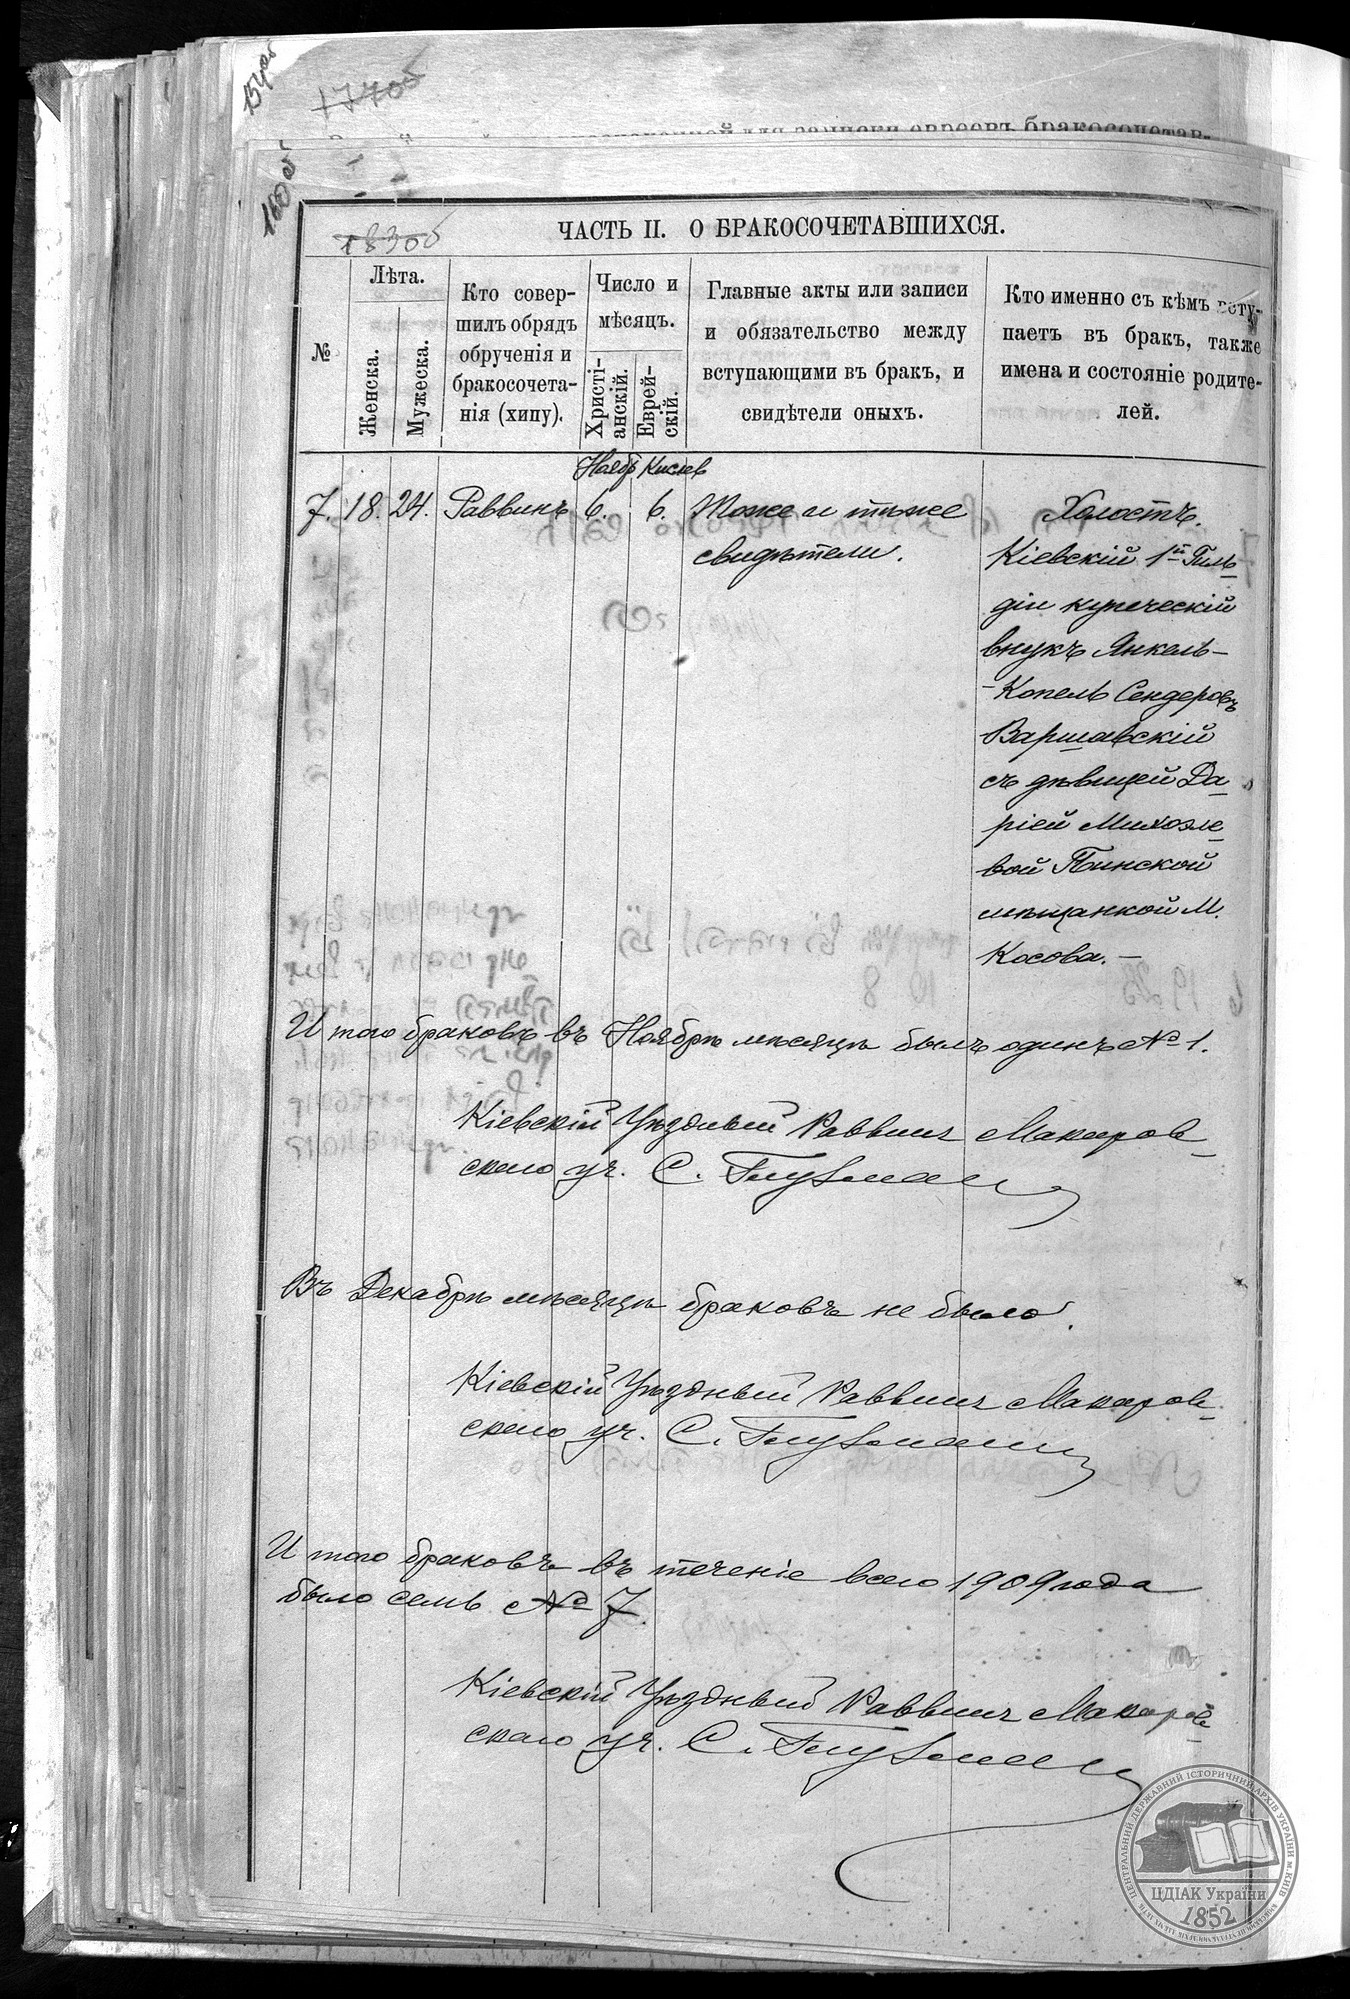 154об
177об
160об
183об
ЧАСТЬ II. О БРАКОСОЧЕТАВШИХСЯ.
№
Лѣта.
Женска.
Мужеска.
Кто совер-
шилъ обрядъ
обрученія и
бракосочета-
нія (хипу).
Число и
мѣсяцъ.
Христі-
анскій.
Еврей-
скій.
Главные акты или записи
и обязательство между
вступающими въ бракъ, и
свидѣтели оныхъ.
Кто именно съ кѣмъ всту-
паетъ въ бракъ, также
имена и состояніе родите-
лей.
Ноябр Кислев
7. 18. 24. Раввинъ 6. 6. Тоже и тѣже
свидѣтели.
Холостъ.
Кіевскій 1й Гиль-
діи купеческій
внукъ Янкель-
-Копель Сендеровъ
Варшавскій
съ дѣвицей Да-
ріей Михоэле-
вой Пинской
мѣщанкой М.
Косова. —
И того браковъ въ Ноябрѣ мѣсяцѣ былъ одинъ № 1.
Кіевскій Уѣздный Раввинъ Макаров-
скаго уч. С. Глузман
Въ Декабрѣ мѣсяцѣ браковъ не было.
Кіевскій Уѣздный Раввинъ Макаров-
скаго уч. С. Глузман
И того браковъ въ теченіе всего 1909 года
было семь № 7.
Кіевскій Уѣздный Раввинъ Макаров-
скаго уч. С. Глузман
ЦЕНТРАЛЬНИЙ ДЕРЖАВНИЙ ІСТОРИЧНИЙ АРХІВ УКРАЇНИ м. КИЇВ
ЦДІАК України
1852